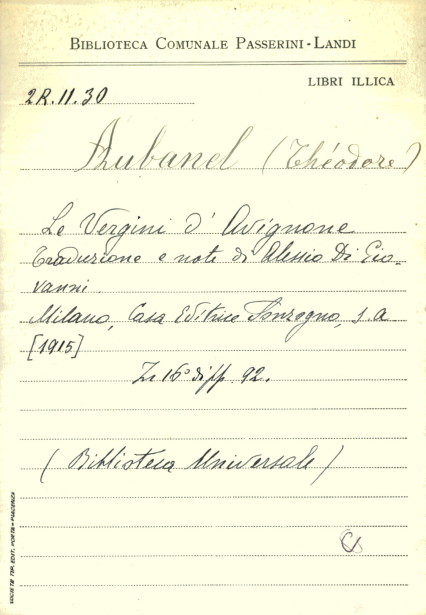 BIBLIOTECA COMUNALE PASSERINI-LANDI
LIBRI ILLICA
2R.II.30
Aubanel (Théodore)
Le Vergini d' Avignone
Traduzione e note di Alessio Di Gio-
vanni
Milano, Casa Editrice Sonzogno, s. a
[1915]
In 16° di pp. 92.
(Biblioteca Universale)
SOCIETÀ TIP. EDIT. PORTA - PIACENZA